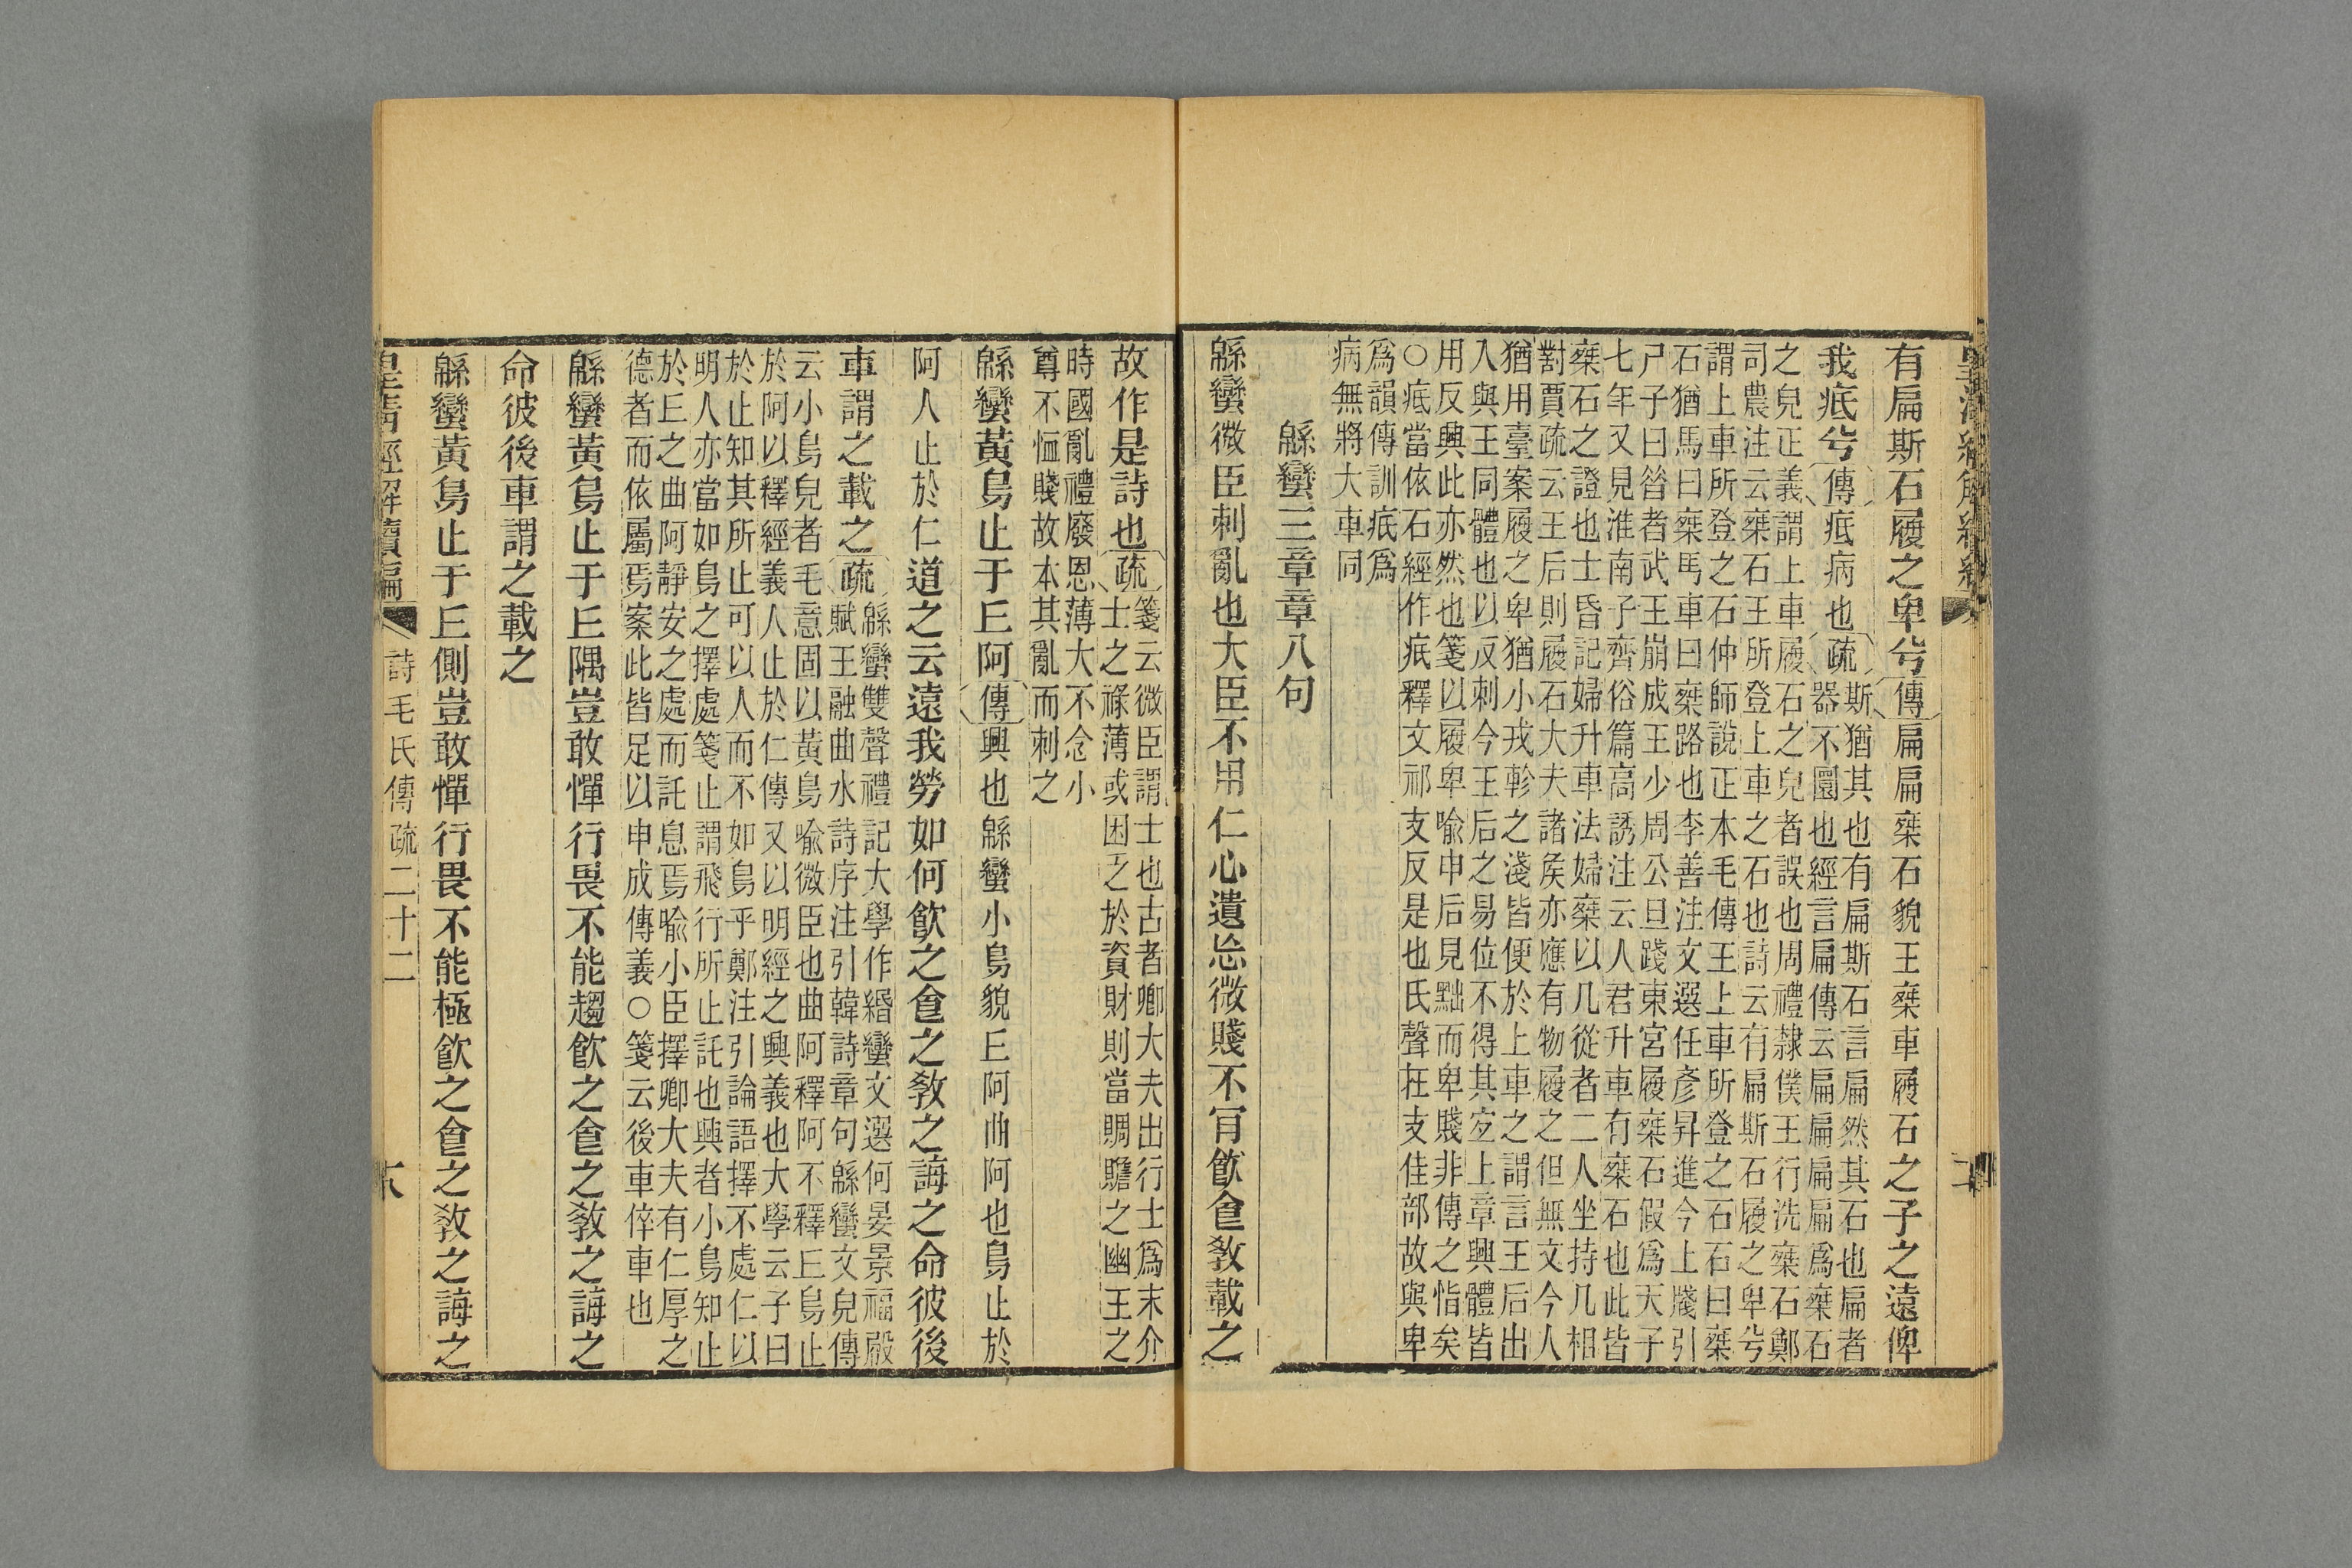 有扁斯石履之卑兮傳扁扁椉石貌王椉車履石之子之遠俾
我疧兮傳疧病也疏斯猶其也有扁斯石言扁然其石也扁者
器不圜也經言扁傳云扁扁扁扁爲椉石
之皃正義謂上車履石之皃者誤也周禮隷僕王行洗椉石鄭
司農注云椉石王所登上車之石也詩云有扁斯石履之卑兮
謂上車所登之石仲師說正本毛傳王上車所登之石石曰椉
石猶馬曰椉馬車曰椉路也李善注文選任彥昇進今上牋引
尸子曰昔者武王崩成王少周公旦踐東宮履椉石假爲天子
七年又見淮南子齊俗篇高誘注云人君升車有椉石也此皆
椉石之證也士昏記婦升車法婦椉以几從者二人坐持几相
對賈疏云王后則履石大夫諸矦亦應有物履之但無文今人
猶用臺案履之卑猶小戎輚之淺皆便於上車之謂言王后出
入與王同體也以反刺今王后之易位不得其宐上章興體皆
用反興此亦然也箋以履卑喻申后見黜而卑賤非傳之恉矣
○疧當依石經作疷釋文祁支反是也氏聲在支佳部故與卑
爲韻傳訓疷爲
病無將大車同
緜蠻三章章八句
緜蠻微臣刺亂也大臣不用仁心遺㤀微賤不肎飮食敎載之
故作是詩也疏箋云微臣謂士也古者卿大夫出行士爲末介
士之祿薄或困乏於資財則當賙贍之幽王之
時國亂禮廢恩薄大不念小
尊不恤賤故本其亂而刺之
緜蠻黃鳥止于丘阿傳興也緜蠻小鳥貌丘阿曲阿也鳥止於
阿人止於仁道之云遠我勞如何飮之食之敎之誨之命彼後
車謂之載之疏緜蠻雙聲禮記大學作緡蠻文選何晏景福殿
賦王融曲水詩序注引韓詩章句緜蠻文皃傳
云小鳥皃者毛意固以黃鳥喻微臣也曲阿釋阿不釋丘鳥止
於阿以釋經義人止於仁傳又以明經之興義也大學云子曰
於止知其所止可以人而不如鳥乎鄭注引論語擇不處仁以
明人亦當如鳥之擇處箋止謂飛行所止託也興者小鳥知止
於丘之曲阿靜安之處而託息焉喻小臣擇卿大夫有仁厚之
德者而依屬焉案此皆足以申成傳義○箋云後車倅車也
緜蠻黃鳥止于丘隅豈敢憚行畏不能趨飮之食之敎之誨之
命彼後車謂之載之
緜蠻黃鳥止于丘側豈敢憚行畏不能極飮之食之敎之誨之
皇淸經解續編 詩毛氏傳疏二十二